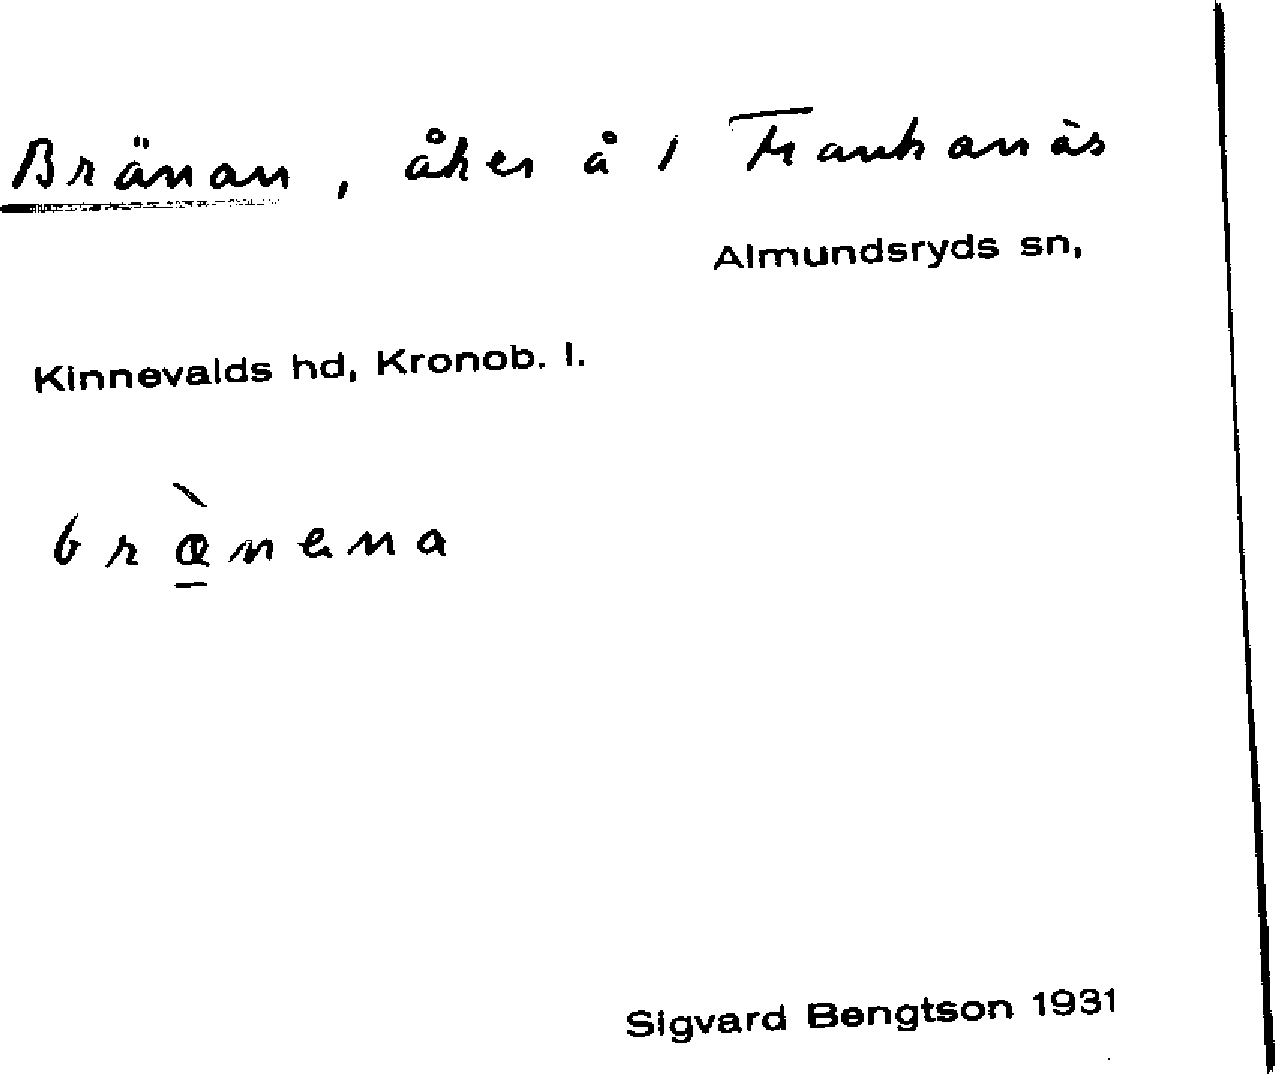 Bränan, åker å 1 Frankanäs
Almundsryds sn,
Kinnevalds hd, Kronob. l.
br<u>æ̀</u>nena
Sigvard Bengtson 1931